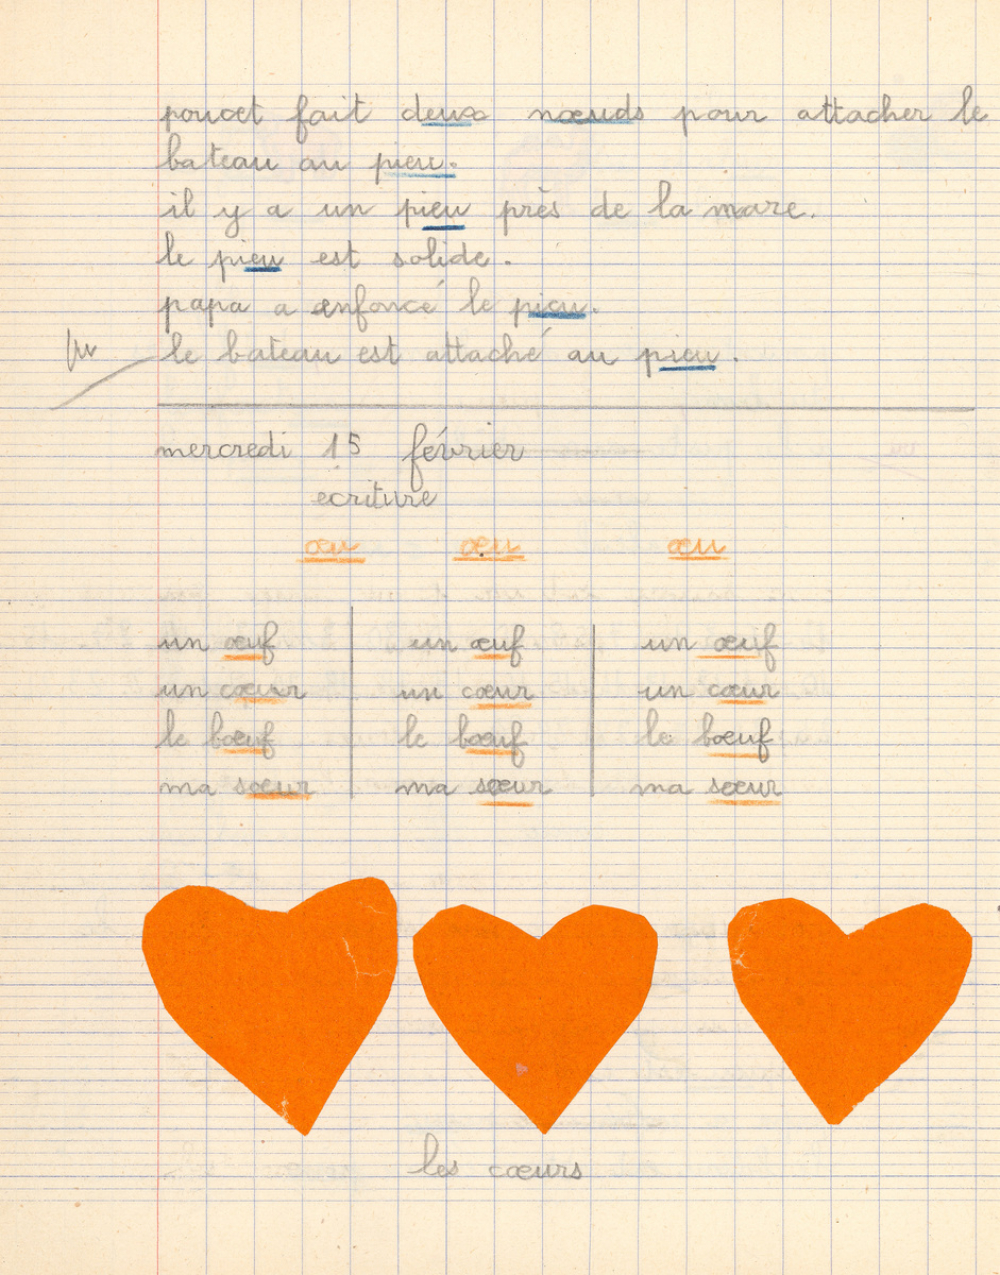 poucet fait deux nœuds pour attacher le
bateau au pieu.
il y a un pieu près de la mare.
le pieu est solide.
papa a enfoncé le pieu.
vu
le bateau est attaché au pieu.
mercredi 15 février
ecriture
œu œu œu
un œuf un œuf un œuf
un cœur un cœur un cœur
le bœuf le bœuf le bœuf
ma sœur ma sœur ma sœur
les cœurs